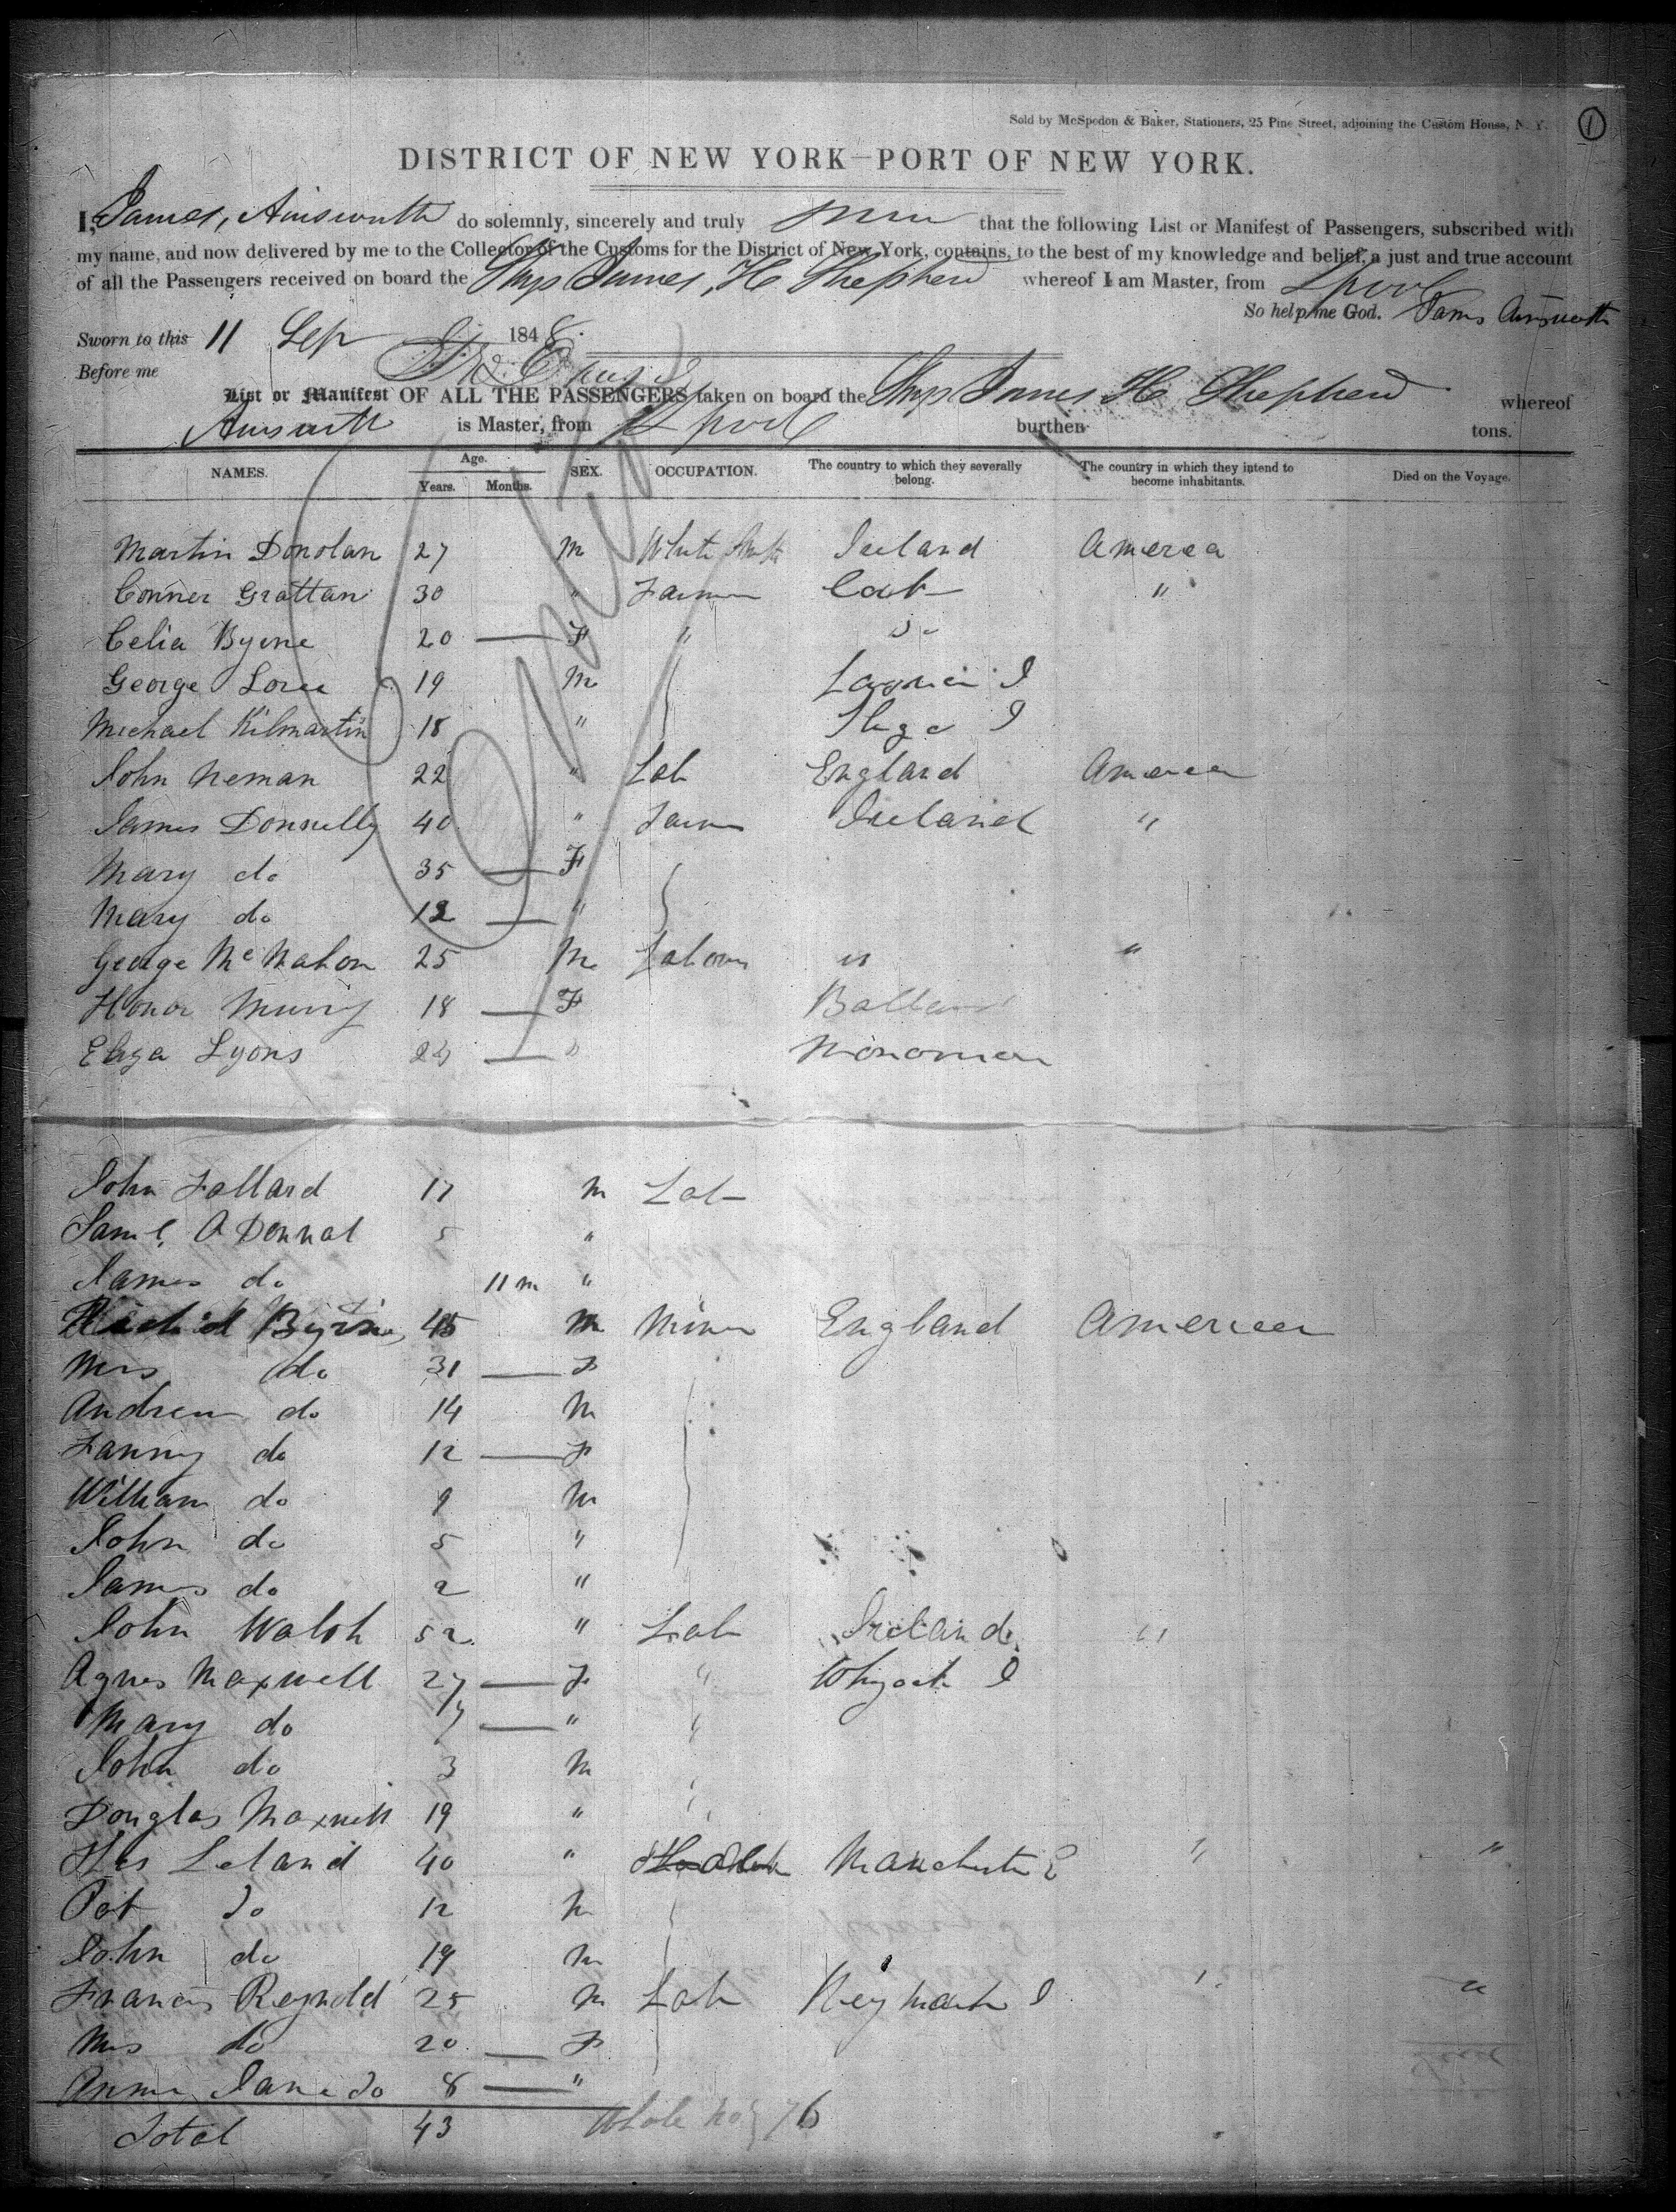 Sold by McSpedon & Baker, Stationers, 25 Pine Street, adjoining the Custom House, N. Y. 1
DISTRICT OF NEW YORK—PORT OF NEW YORK.
I, James, Ainsworth do solemnly, sincerely and truly that the following List or Manifest of Passengers, subscribed with
my name, and now delivered by me to the Collector of the Customs for the District of New York, contains, to the best of my knowledge and belief, a just and true account
of all the Passengers received on board the Ship James, H Shepherd whereof I am Master, from Lpool
So help me God. James Ainsworth
Sworn to this 11 Sep 1848.
Before me
List or Manifest OF ALL THE PASSENGERS taken on board the Ship James H Shepherd whereof
Ainsworth is Master, from Lpool burthen tons.
NAMES. Age. Years. Months. SEX. OCCUPATION. The country to which they severally belong. The country in which they intend to become inhabitants. Died on the Voyage.
Martin Donolan 27 M White Smith Ireland America
Conner Grattan 30 " Farmer "
Celia Byrne 20 — F " do
George 19 M I
Michael Kilmartin 18 " I
John Neman 22 " Lab England America
James Donnelly 40 " Farmer Ireland "
Mary do 35 — F
Mary do 12 — "
George McMahon 25 M Labourer " "
Honor Murry 18 — F
Eliza Lyons 24 — "
John Follard 17 M Lab
Saml. O Donnal 5 "
James do 11 m "
Byrne 45 M Miner England America
Mrs do 31 — F
Andrew do 14 M
Fanny do 12 — F
William do 9 M
John do 5 "
James do 2 "
John Walsh 52 " Lab Ireland "
Agnes Maxwell 27 — F " I
Mary do — " "
John do 3 M
Douglas Maxwell 19 "
Leland 40 " Manchester E " "
Pat do 12 M
John do 19 M
Francis Reynold 25 M Lab I " "
Mrs do 20 — F
Anne Jane do 8 — "
Total 43 Whole No 76